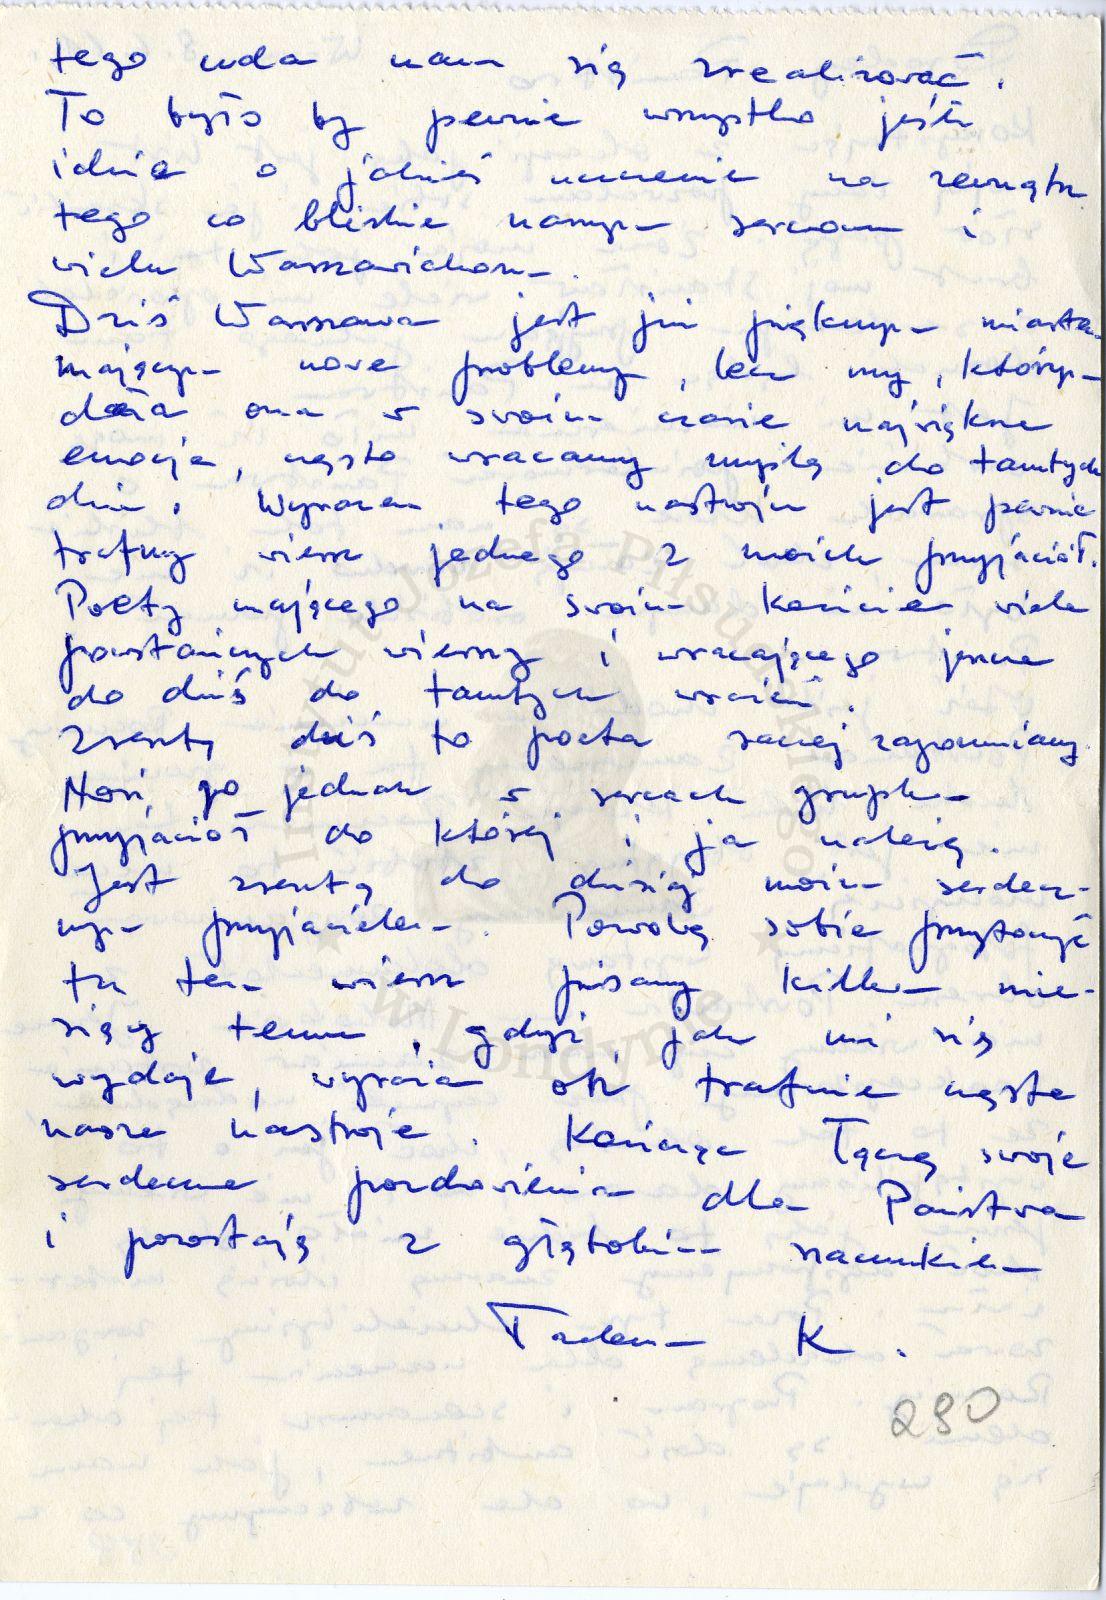 tego uda nam się zrealizować.
To było by pewnie wszystko jeśli
idzie o jakieś uczczenie na zewnątrz
tego co bliskie naszym sercom i
wielu Warszawiakom.
Dziś Warszawa jest już pięknym miastem
mającym nowe problemy, lecz my, którym
dała ona w swoim czasie największe
emocje, często wracamy myślą do tamtych
dni. Wyrazem tego nastroju jest pewnie
trafny wiersz jednego z moich przyjaciół.
Poety mającego na swoim koncie wiele
powstańczych wierszy i wracającego jeszcze
do dziś do tamtych wrzeń.
Zresztą dziś to poeta raczej zapomniany.
Nosi go jednak w sercach grupka
przyjaciół do której i ja należę.
Jest zresztą do dzisiaj moim serdecz-
nym przyjacielem. Pozwolę sobie przytoczyć
tu ten wiersz pisany kilka mie-
sięcy temu, gdyż jak mi się
wydaje, wyraża on trafnie często
nasze nastroje. Kończąc łączę swoje
serdeczne pozdrowienia dla Państwa
i pozostaję z głębokim szacunkiem
Tadeusz K.
290
Instytut Józefa Piłsudskiego
w Londynie